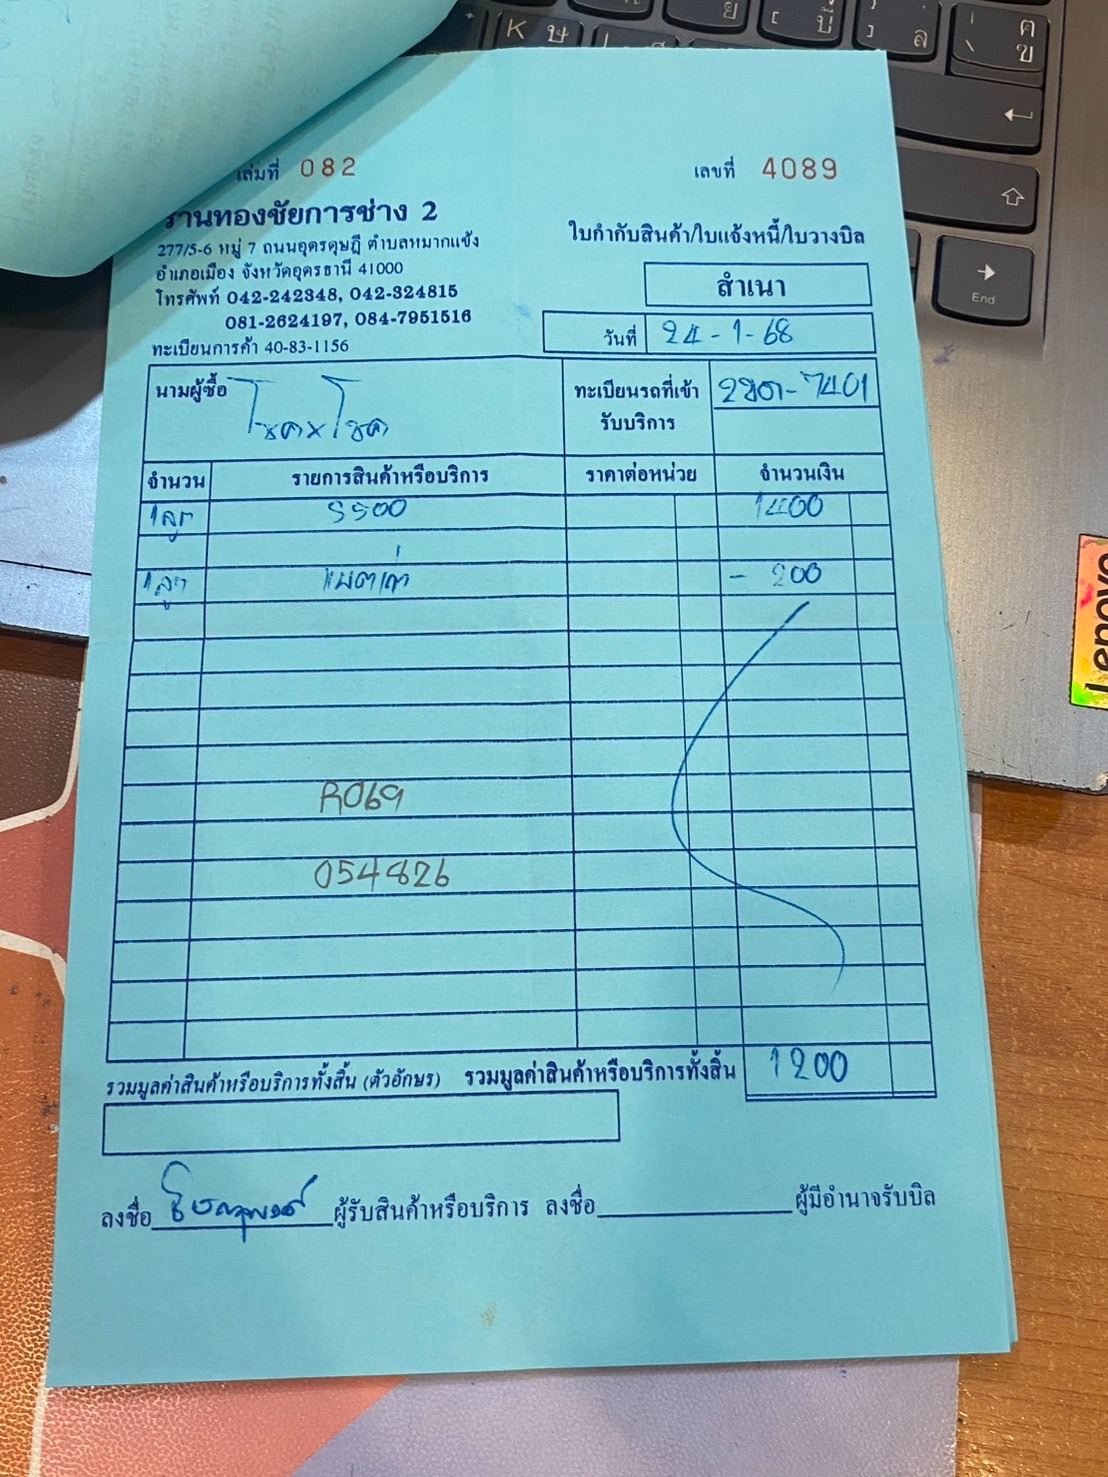 เล่มที่ 082
เลขที่ 4089
ร้านทองชัยการช่าง 2
277/5-6 หมู่ 7 ถนนอุดรดุษฎี ตำบลหมากแข้ง
อำเภอเมือง จังหวัดอุดรธานี 41000
โทรศัพท์ 042-242348, 042-324815
081-2624197, 084-7951516
ทะเบียนการค้า 40-83-1156
ใบกำกับสินค้า/ใบแจ้งหนี้/ใบวางบิล
สำเนา
วันที่ 24-1-68
นามผู้ซื้อ โชคxโชค
ทะเบียนรถที่เข้า
รับบริการ
7401
จำนวน รายการสินค้าหรือบริการ ราคาต่อหน่วย จำนวนเงิน
1ลูก S500 1400
1ลูก แบตเก่า - 200
R069
054826
รวมมูลค่าสินค้าหรือบริการทั้งสิ้น (ตัวอักษร) รวมมูลค่าสินค้าหรือบริการทั้งสิ้น 1200
ลงชื่อ ผู้รับสินค้าหรือบริการ ลงชื่อ ผู้มีอำนาจรับบิล
K ษ
End
Lenovo